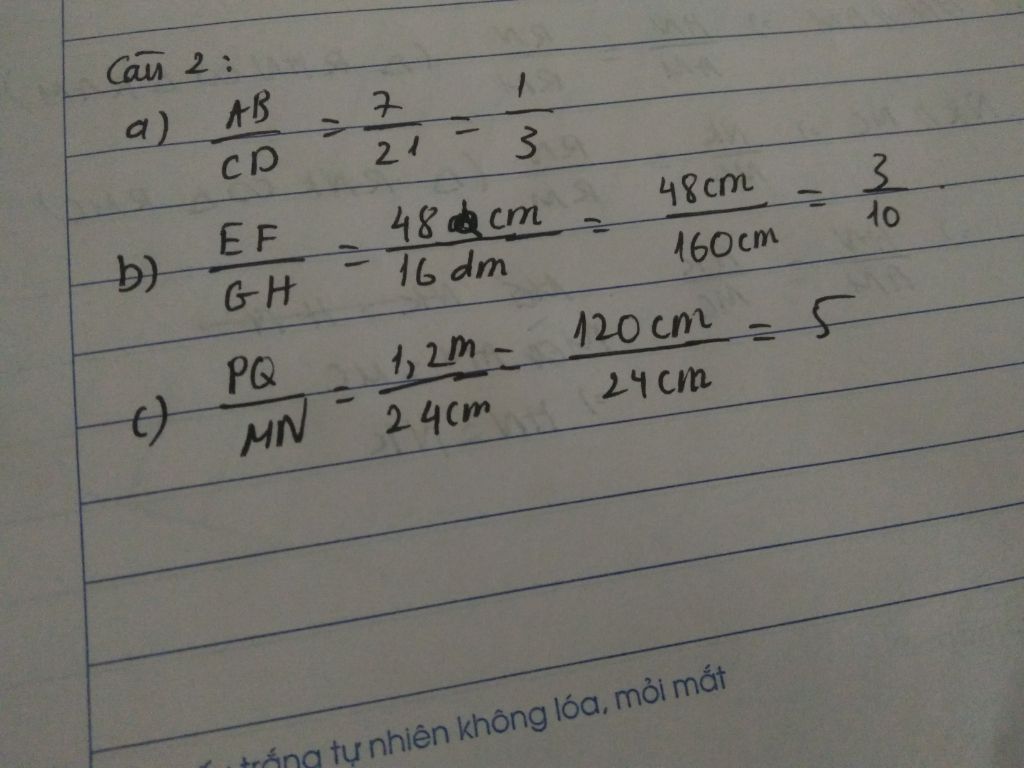 Câu 2:
a) AB/CD = 7/21 = 1/3
b) EF/GH = 48 cm/16 dm = 48cm/160cm = 3/10
c) PQ/MN = 1,2m/24cm = 120cm/24cm = 5
trắng tự nhiên không lóa, mỏi mắt